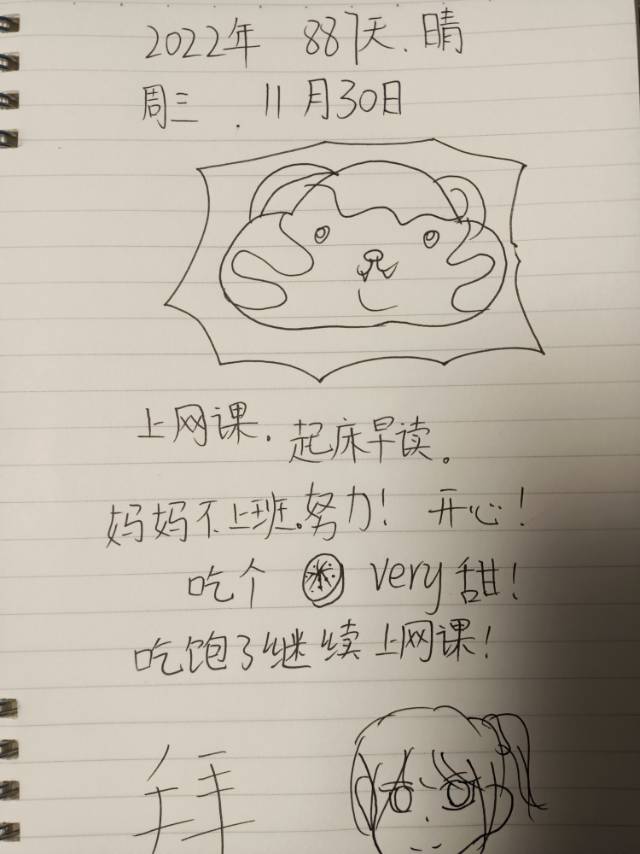 2022年 887天.晴
周三. 11月30日
上网课.起床早读。
妈妈不上班.努力! 开心!
吃个 very甜!
吃饱了继续上网课!
拜